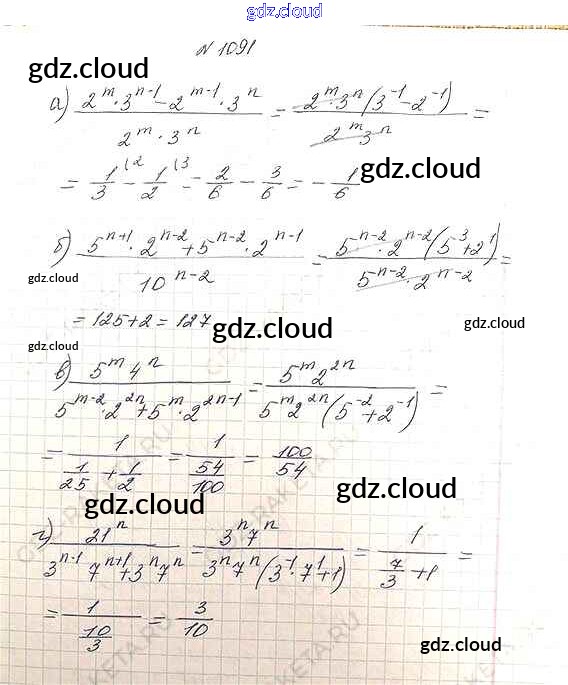 gdz.cloud
N 1091
gdz.cloud
а) (2^m · 3^(n-1) - 2^(m-1) · 3^n) / (2^m · 3^n) = (2^m · 3^n (3^(-1) - 2^(-1))) / (2^m 3^n) =
= 1/3 (2 - 1/2 (3 = 2/6 - 3/6 = - 1/6
gdz.cloud
gdz.cloud
б) (5^(n+1) · 2^(n-2) + 5^(n-2) · 2^(n-1)) / 10^(n-2) = (5^(n-2) · 2^(n-2) (5^3 + 2^1)) / (5^(n-2) · 2^(n-2)) =
gdz.cloud
= 125 + 2 = 127
gdz.cloud
gdz.cloud
gdz.cloud
в) (5^m 4^n) / (5^(m-2) · 2^(2n) + 5^m · 2^(2n-1)) = (5^m 2^(2n)) / (5^m 2^(2n) (5^(-2) + 2^(-1))) =
= 1 / (1/25 + 1/2) = 1 / (54/100) = 100/54
gdz.cloud
gdz.cloud
г) 21^n / (3^(n-1) 7^(n+1) + 3^n 7^n) = (3^n 7^n) / (3^n 7^n (3^(-1) · 7^1 + 1)) = 1 / (7/3 + 1) =
= 1 / (10/3) = 3/10
gdz.cloud
gdz.cloud